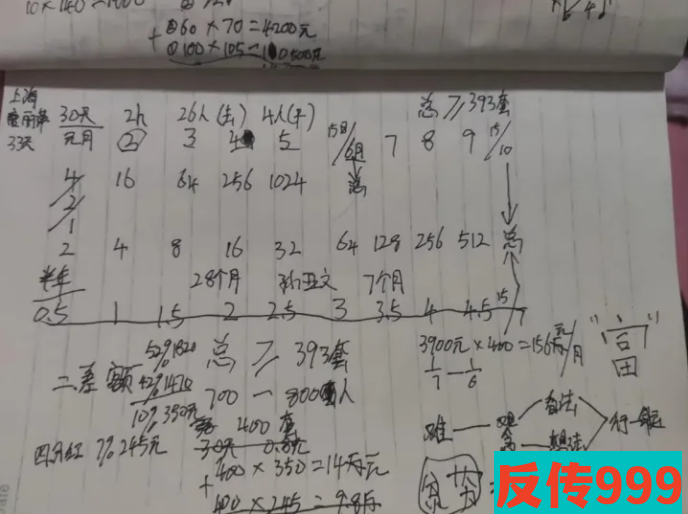 10×140=1000
+ ①60×70=4200元
①100×105=10500元
上海
33天
30天 2人 26人(去) 4人(不) 总≥393套
元月 ② 3 4 5 15日/6月 7 8 9 15/10
4 16 64 256 1024 总
2
1
2 4 8 16 32 64 128 256 512 总
半年 28个月 孙丑文 7个月
0.5 1 1.5 2 2.5 3 3.5 4 4.5 15
52%1820 总≥393套 3900元×400=156万元/月 "富"
二差额 42%1470 700一800人 1/7—1/6
10%350元 400套
四分红 7%245元 30天 0.8元
+ 400×350=14万元
400×245=9.8万
难 — 看法
想法 行
反传999